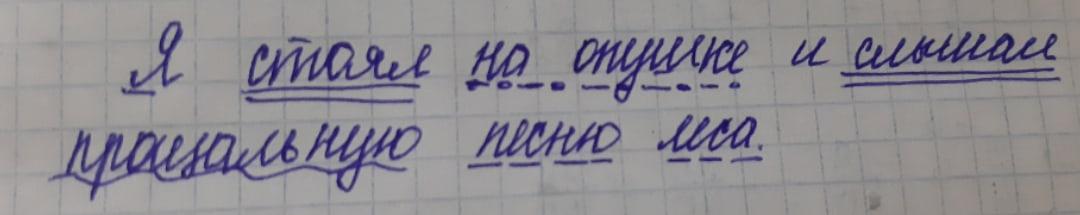 Я стоял на опушке и слышал
прощальную песню леса.